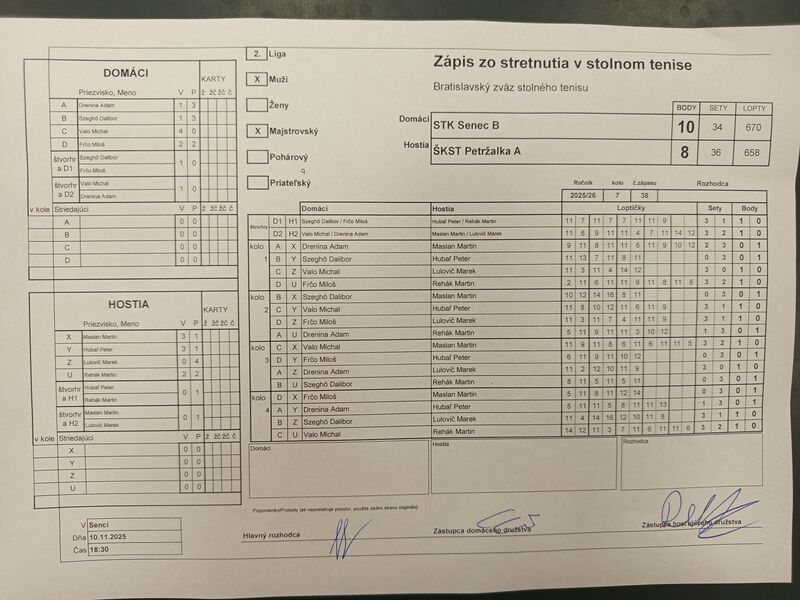 Zápis zo stretnutia v stolnom tenise
Bratislavský zväz stolného tenisu
2. Liga
X Muži
Ženy
X Majstrovský
Pohárový
q
Priateľský
BODY SETY LOPTY
Domáci STK Senec B 10 34 670
Hostia ŠKST Petržalka A 8 36 658
Ročník kolo č.zápasu Rozhodca
2025/26 7 38
DOMÁCI
KARTY
Priezvisko, Meno V P ž žč žč č
A Drenina Adam 1 3
B Szeghő Dalibor 1 3
C Valo Michal 4 0
D Frčo Miloš 2 2
štvorhr a D1 Szeghő Dalibor 1 0
Frčo Miloš
štvorhr a D2 Valo Michal 1 0
Drenina Adam
v kole Striedajúci V P ž žč žč č
A 0 0
B 0 0
C 0 0
D 0 0
HOSTIA
KARTY
Priezvisko, Meno V P ž žč žč č
X Maslan Martin 3 1
Y Hubaľ Peter 3 1
Z Lulovič Marek 0 4
U Rehák Martin 2 2
štvorhr a H1 Hubaľ Peter 0 1
Rehák Martin
štvorhr a H2 Maslan Martin 0 1
Lulovič Marek
v kole Striedajúci V P ž žč žč č
X 0 0
Y 0 0
Z 0 0
U 0 0
Domáci Hostia Loptičky Sety Body
štvorhry D1 H1 Szeghő Dalibor / Frčo Miloš Hubaľ Peter / Rehák Martin 11 7 11 7 7 11 11 9 3 1 1 0
D2 H2 Valo Michal / Drenina Adam Maslan Martin / Lulovič Marek 11 6 9 11 11 4 7 11 14 12 3 2 1 0
kolo 1 A X Drenina Adam Maslan Martin 9 11 8 11 11 6 11 9 10 12 2 3 0 1
B Y Szeghő Dalibor Hubaľ Peter 11 13 7 11 8 11 0 3 0 1
C Z Valo Michal Lulovič Marek 11 3 11 4 14 12 3 0 1 0
D U Frčo Miloš Rehák Martin 2 11 6 11 11 9 11 8 11 8 3 2 1 0
kolo 2 B X Szeghő Dalibor Maslan Martin 10 12 14 16 8 11 0 3 0 1
C Y Valo Michal Hubaľ Peter 11 8 10 12 11 6 11 9 3 1 1 0
D Z Frčo Miloš Lulovič Marek 11 3 11 7 4 11 11 9 3 1 1 0
A U Drenina Adam Rehák Martin 5 11 9 11 11 3 10 12 1 3 0 1
kolo 3 C X Valo Michal Maslan Martin 11 9 11 8 6 11 6 11 11 5 3 2 1 0
D Y Frčo Miloš Hubaľ Peter 6 11 9 11 10 12 0 3 0 1
A Z Drenina Adam Lulovič Marek 11 2 12 10 11 9 3 0 1 0
B U Szeghő Dalibor Rehák Martin 8 11 5 11 5 11 0 3 0 1
kolo 4 D X Frčo Miloš Maslan Martin 5 11 8 11 12 14 0 3 0 1
A Y Drenina Adam Hubaľ Peter 5 11 11 5 8 11 11 13 1 3 0 1
B Z Szeghő Dalibor Lulovič Marek 11 4 14 16 12 10 11 8 3 1 1 0
C U Valo Michal Rehák Martin 14 12 11 3 7 11 6 11 11 6 3 2 1 0
Domáci Hostia Rozhodca
Pripomienky/Protesty (ak nepostačuje priestor, použite zadnú stranu originálu)
V Senci
Dňa 10.11.2025
Čas 18:30
Hlavný rozhodca
Zástupca domáceho družstva
Zástupca hosťujúceho družstva